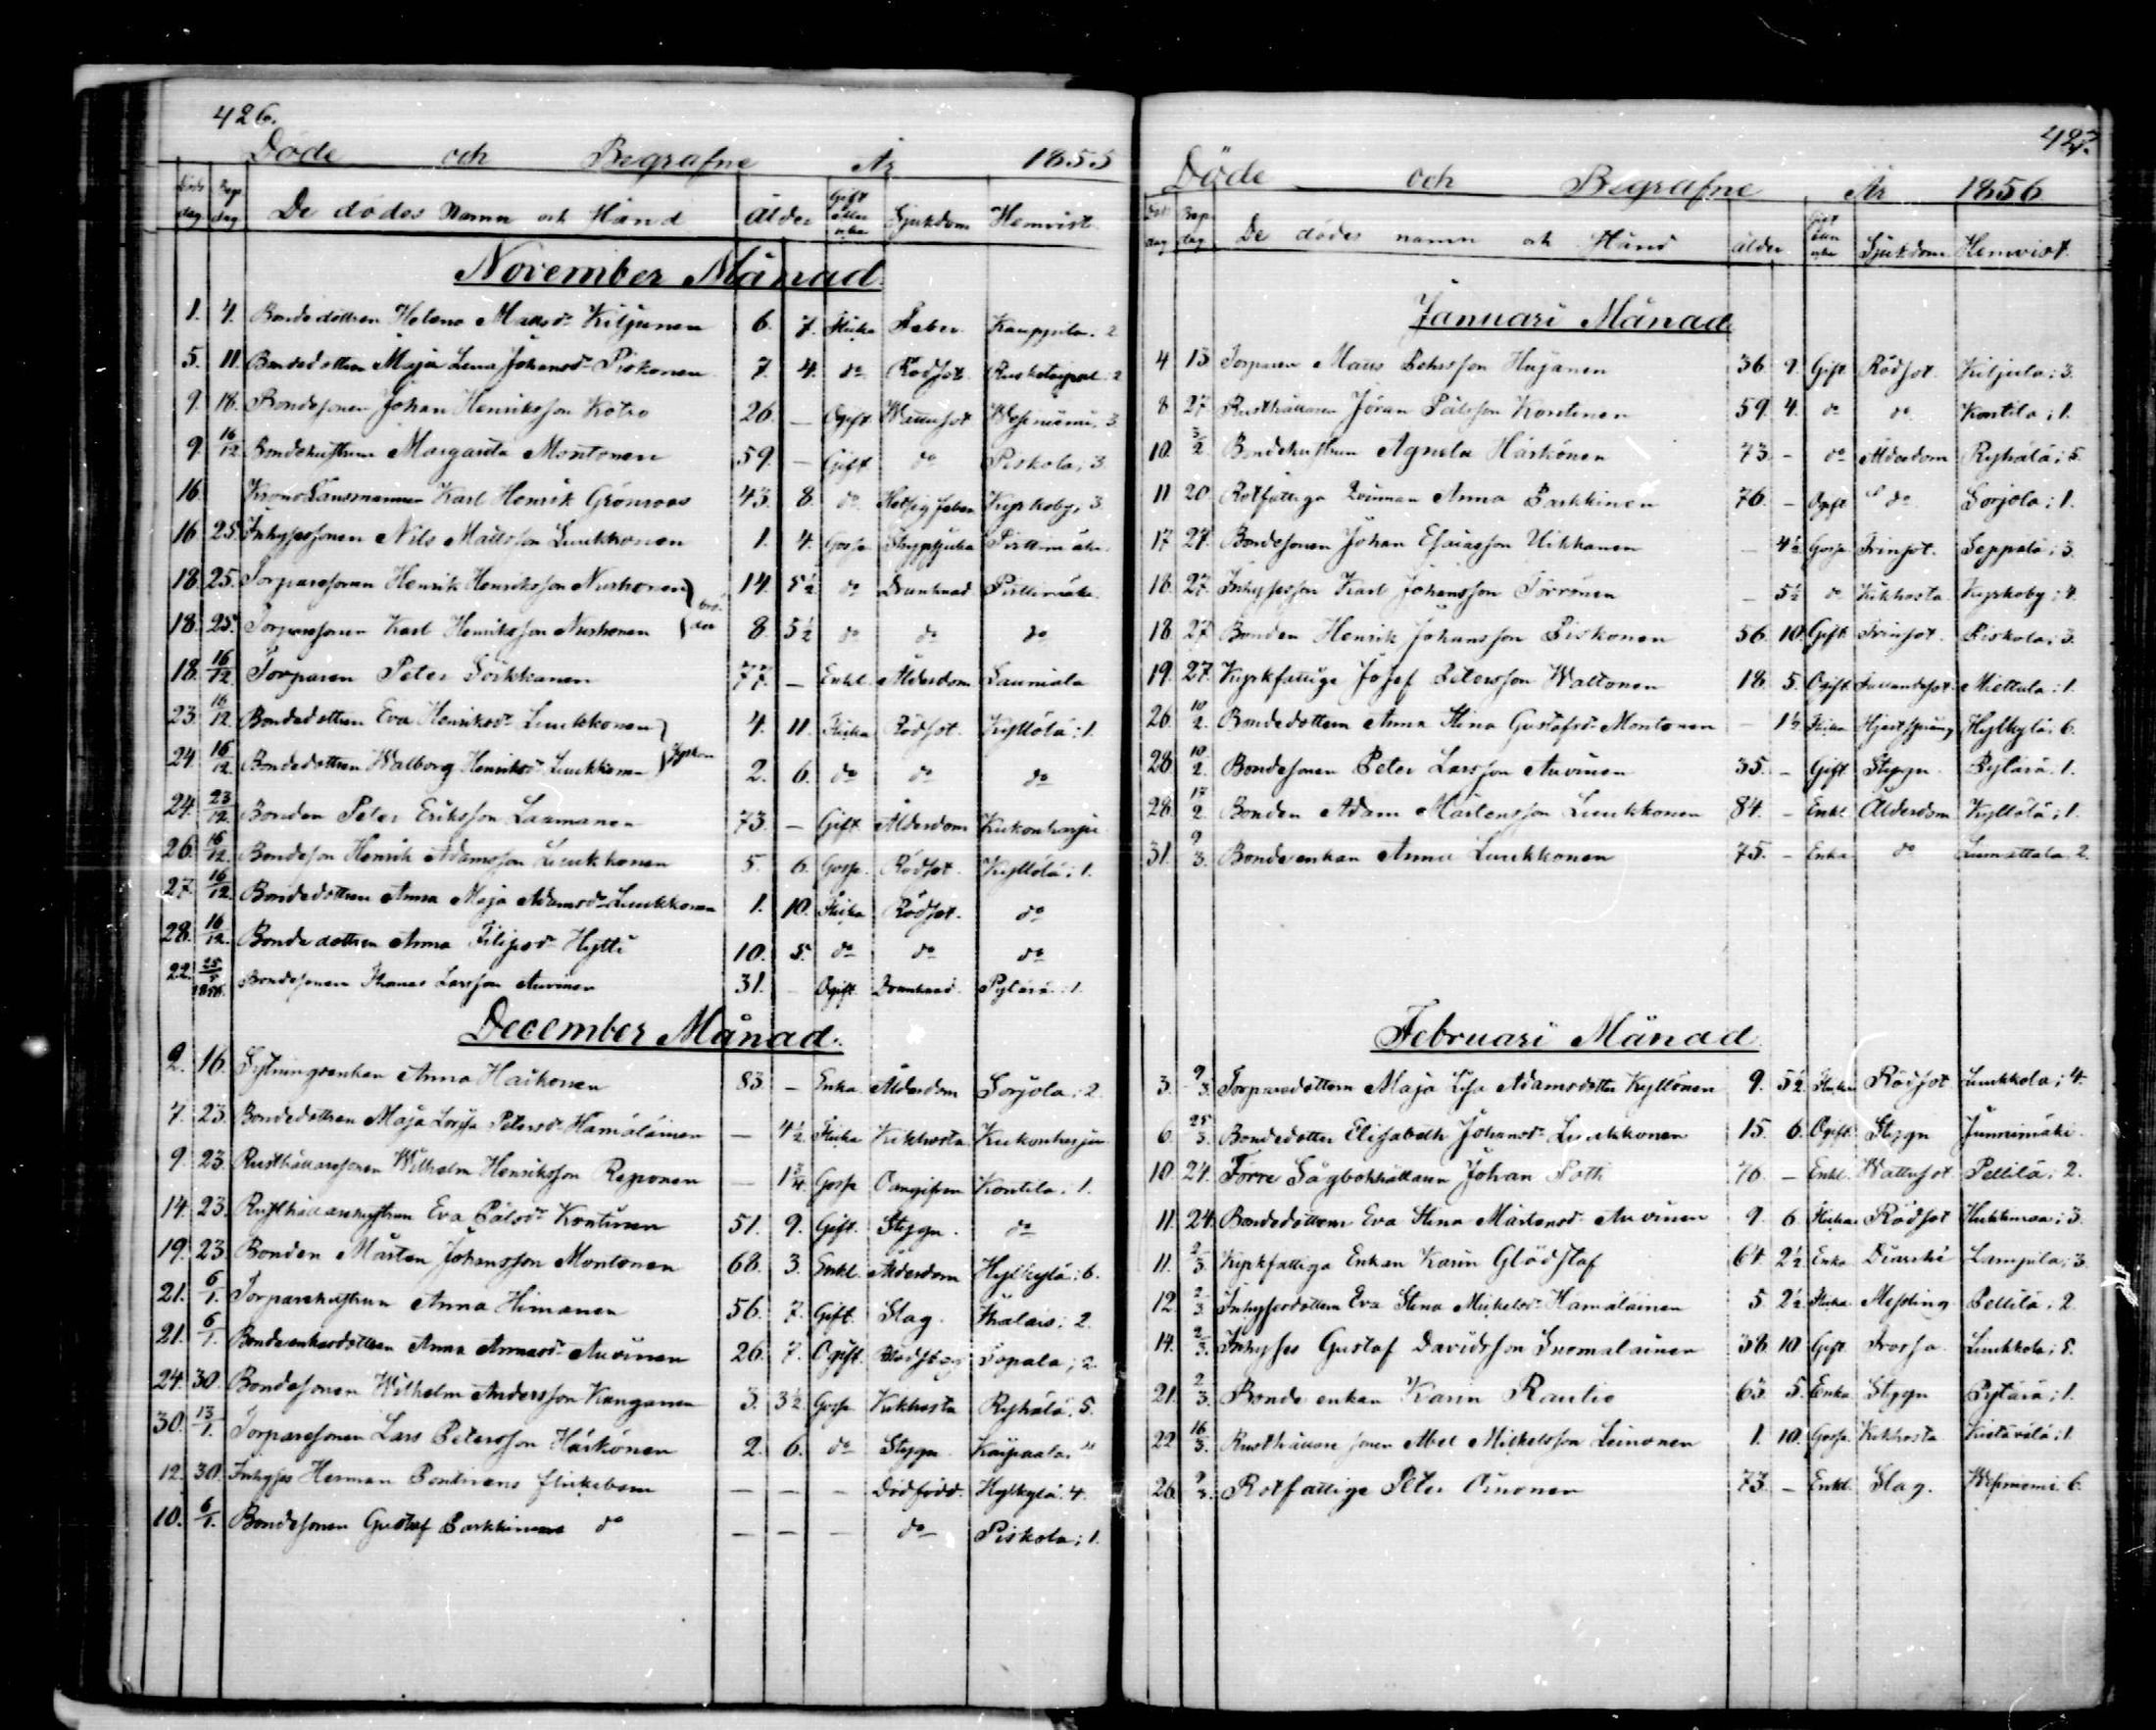 426.
Döde och Begrafne År 1855
Döds dag Begr dag De dödas Namn och Stånd Ålder Gift eller ogift Sjukdom Hemvist
November Månad
1. 4. Bondedottren Helena Mattsdr Kiljunen 6. 7. Flicka Feber Kauppila. 2
5. 11. Bondedottren Maja Lena Johansdr Piskonen 7. 4. do Rödsot Ruskeispol. 2
9. 18. Bondesonen Johan Henriksson Kotro 26. — Ogift Wattusot Wesiniemi. 3
9. 16/12 Bondehustrun Margareta Montonen 59. — Gift do Piskola; 3.
16 Krono Länsmannen Karl Henrik Grönroos 43. 8. do Hetsig feber Kyrkoby; 3
16 25. Inhysessonen Nils Mattsson Luukkonen 1. 4. Gosse Skrppsjuka Pirttimäki
18. 25. Torparesonen Henrik Henriksson Nurhonen 14. 5½ do Drunknad Pirttimäki
18. 25. Torparesonen Karl Henriksson Nurhonen brö-der 8. 5½ do do do
18. 16/12 Torparen Peter Sorkkanen 77. — Enkl. Ålderdom Sauniala
23. 16/12. Bondedottren Eva Henriksdr Luukkonen 4. 11. Flicka Rödsot. Kyllölä: 1.
24. 16/12. Bondedottren Walborg Henriksdr Luukkonen Syskon 2. 6. do do do
24. 23/12. Bonden Peter Eriksson Laamanen 73. — Gift Ålderdom Kukonharju
26. 16/12. Bondeson Henrik Adamsson Luukkonen 5. 6. Gosse Rödsot. Kyllölä: 1.
27. 16/12. Bondedottren Anna Maja Adamsdr Luukkonen 1. 10. Flicka Rödsot. do
28. 16/12. Bondedottren Anna Filipsdr Hytti 10. 5. do do do
22. 25/5 1856. Bondesonen Thomas Larsson Auvinen 31. — Ogift Drunknad. Pytärä: 1.
December Månad.
2. 16. Sytningsenkan Anna Haikonen 83. — Enka Ålderdom Sorjola: 2
7. 23. Bondedottren Maja Lovisa Petersdr Hämäläinen — 4½ Flicka Kikhosta Kukonharju
9. 23. Rusthållaresonen Wilhelm Henriksson Reponen — 1¾ Gosse Oangifven Kontila: 1.
14. 23. Rusthållarehustrun Eva Pålsdr Kontinen 51. 9. Gift. Stygn. do
19. 23 Bonden Mårten Johansson Montonen 68. 3. Enkl. Ålderdom Hyrkylä: 6.
21. 6/1. Torparehustrun Anna Himanen 56. 7. Gift. Slag. Thalais; 2.
21. 6/1. Bondeenkedottren Anna Annasdr Auvinen 26. 7. Ogift. Sopala; 2.
24. 30. Bondesonen Wilhelm Andersson Kanganen 3. 3½. Gosse Kikhosta Ryhälä. 5.
30. 13/1. Torparesonen Lars Petersson Härkönen 2. 6. do Stygn Kaipaala.
12. 30. Inhyses Herman Pontinens flickebarn — — — Dödfödd. Hylkylä. 4.
10. 6/1. Bondesonen Gustaf Parkkinens do — — — do Piskola; 1.
427.
Döde och Begrafne År 1856
Döds dag Begr dag De dödes namn och Stånd ålder Gift eller ogift Sjukdom Hemvist
Januari Månad
4 13 Torparen Matts Pehrsson Hujanen 36 9. Gift. Rödsot. Kiljula: 3.
8. 27 Rusthållaren Jöran Pålsson Kontinen 59. 4. do do Kontila; 1.
10. 3/2. Bondehustrun Agneta Härkönen 73. — do Ålderdom Ryhälä; 5.
11 20. Rotfattiga Qvinnan Anna Parkkinen 76. — Ogift do Sorjola; 1.
17 27. Bondesonen Johan Esaiasson Uikkanen — 4½ Gosse Trinsot. Seppälä; 3.
18. 27. Inhysesson Karl Johansson Törrönen — 5½ do Kikhosta Kyrkoby; 4.
18. 27. Bonden Henrik Johansson Piskonen 56. 10. Gift Trinsot. Piskola; 3.
19. 27. Kyrkfattige Josef Petersson Waltonen 18. 5. Ogift Fallandesot. Miettula: 1.
26. 10/2. Bondedottern Anna Stina Gustafsdr Montonen — 1½ Flicka Hjertsprång Hylkylä; 6.
28 10/2. Bondesonen Peter Larsson Auvinen 35. — Gift. Stygn. Pytärä. 1.
28. 17/2. Bonden Adam Mårtensson Luukkonen 84. — Enkl. Ålderdom Kyllölä; 1.
31. 9/3. Bondeenkan Anna Luukkonen 75. — Enka do Lumattala. 2.
Februari Månad.
3. 9/3. Torparedottern Maja Lisa Adamsdotter Kyllönen 9. 5½ Flicka Rödsot Luukkola; 4.
6. 25/3. Bondedotter Elisabeth Johansdr Luukkonen 15. 6. Ogift. Stygn Junnimäki.
10. 24. Förre Sågbokhållaren Johan Poth 76. — Enkl. Wattusot. Pellilä; 2.
11. 24. Bondedottern Eva Stina Mårtensdr Auvinen 9. 6. Flicka Rödsot Hukkinsa; 3.
11. 2/3. Kyrkfattiga Enkan Karin Glödstaf 64. 2½ Enka Diarrhé Lamsula; 3.
12. 2/3. Inhysesdottern Eva Stina Mickelsdr Hämäläinen 5. 2½ Flicka Messling Pellilä; 2.
14. 2/3. Inhyses Gustaf Davidsson Suomalainen 36 10 Gift. Frossa Luukkola; 5.
21. 2/3. Bondeenkan Karin Rautio 63. 5. Enka Stygn Pytärä; 1.
22 16/3. Rusthållaresonen Abel Mickelsson Leinonen 1. 10. Gosse Kikhosta Kietävälä; 1.
26. 9/3. Rotfattige Peter Oinonen 73. — Enkl. Slag. Wesiniemi 6.